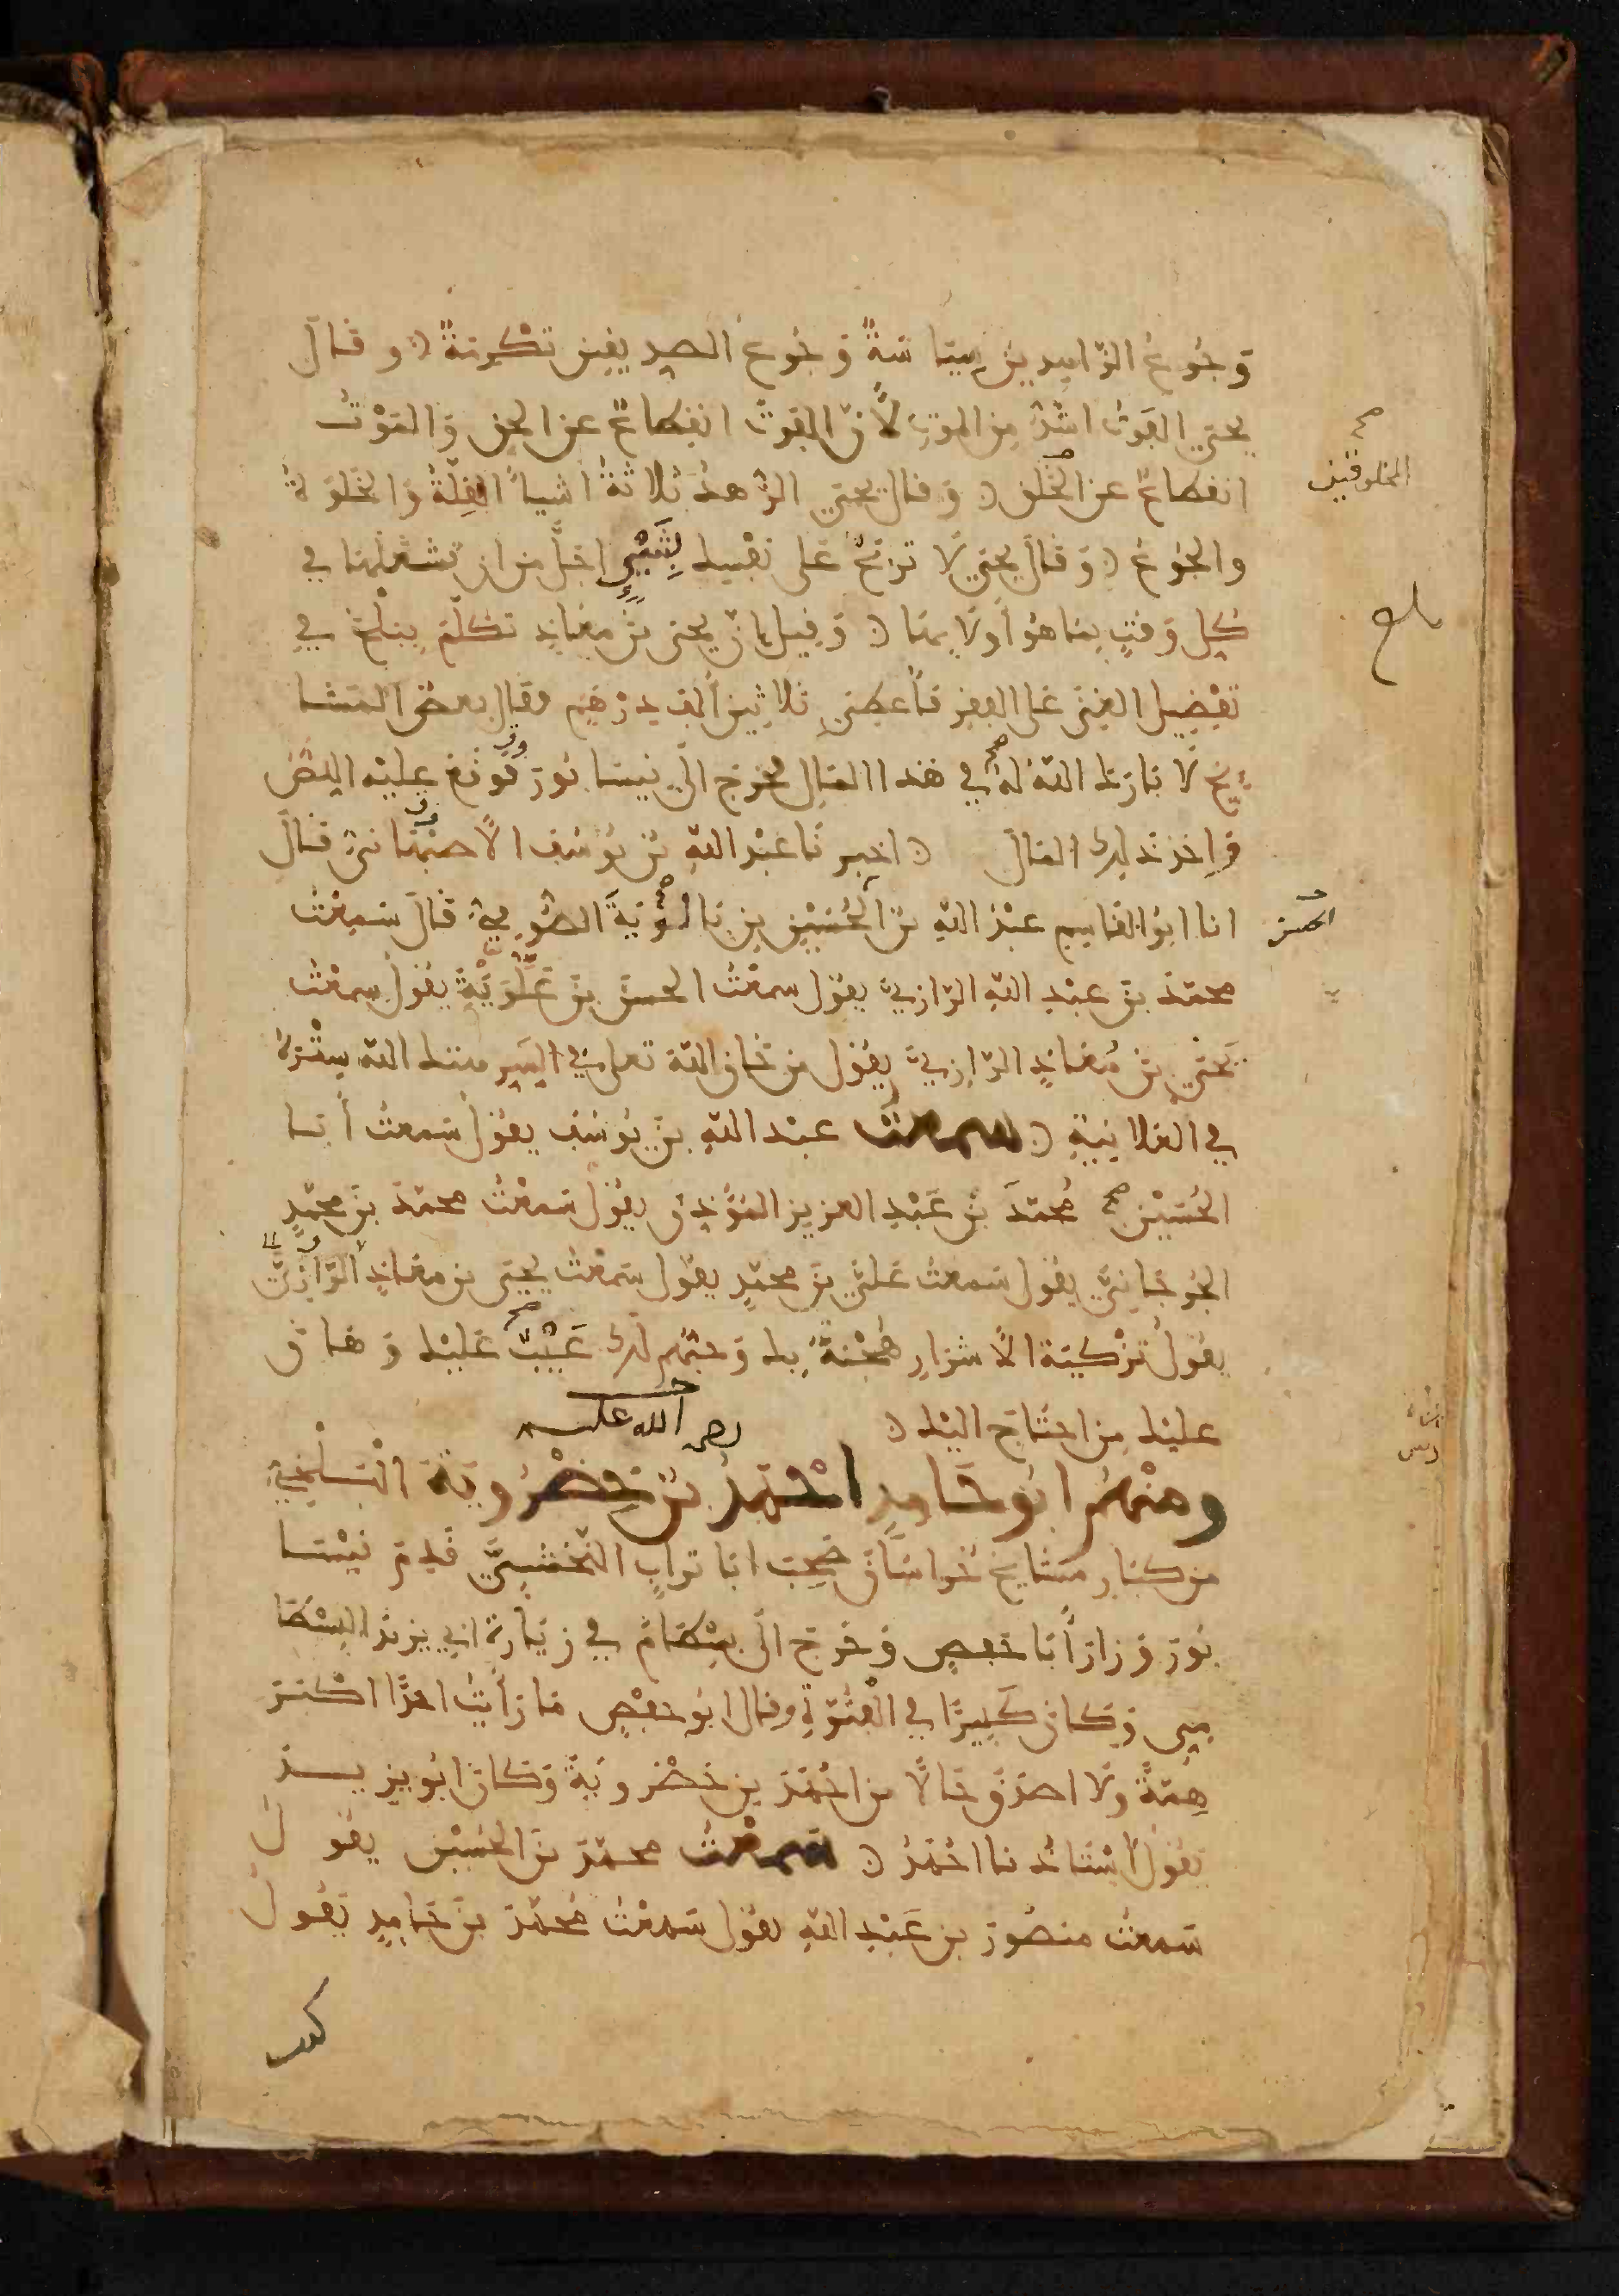 وَجُوعُ الزّاهِدِينَ سِيَاسَةً وَجُوعُ الصِّدِيقِينَ تَكْرِمَةً وقَالَ
يحيى الفَوتُ اشَدُّ مِنَ الموتِ لأنَّ الفَوْتَ انقِطاعٌ عن الحق وَالمَوْتُ
انقطاعٌ عن الخَلق وَقال يحيى الزُهدُ ثَلاثَةُ اشياءَ القِلّةُ وَالخَلوَةُ
المخلوقين
صح
والجُوعُ وَقَالَ يحيى لَا تربَحُ عَلى نَفْسِك بِشَيْءٍ اجَلَّ من ان تَشْغَلَهَا في
كلِ وَقتٍ بمَا هُوَ أَولَا بهَا وَقِيلَ إِنَّ يحيى بْنَ مُعَاذٍ تكَلَّمَ بِبَلْخَ في
بلغ
تَفْضِيلِ الغِنَى عَلى الفقرِ فَأُعطِيَ ثلاثِينَ ألفَ دِرْهَمٍ فقالَ بعضُ المشا
يخِ لَا بَارَكَ اللَّهُ لَهُ في هَذا المَالِ فخَرَجَ الَى نيسَابُورَ فوقَعَ عليْه اللِصُّ
وَاخذ ذلِك المَالَ اخبرنَا عَبْدُ اللَّهِ بْنُ يُوسُفَ الأصبَهَانيُّ قَالَ
انا ابُو القَاسِم عبْدُ اللَّهِ بْنُ الحُسَيْنِ بنِ بَالُوَيَةَ الصُوفيُّ قالَ سَمِعْتُ
الحسن
محمّدَ بنَ عبْدِ اللَّهِ الرَّازيَّ يقُول سمعْتُ الحسَنَ بْنَ عَلُّوَيْةَ يقُولُ سمِعْتُ
يَحيَى بْنَ مُعَاذٍ الرَّازِيَّ يقُولُ مَن خَانَ اللَّهَ تعلى في السِّرِ هتَكَ اللَّهُ سِتْرَهُ
في العَلانِيَةِ سمعتُ عبْد اللَّهِ بْنَ يُوسُفَ يقُولُ سَمعتُ أَبَا
الحُسَيْنِ صح مُحمّدَ بْنَ عَبْدِ العزيز المُؤَذِنَ يقُول سَمعْتُ محمّدَ بْنَ محمّدٍ
الجُرجَانِيَّ يقُول سَمعتُ عَليَّ بْنَ محمّدٍ يقُول سَمعْتُ يحيَى بْنَ مُعَاذٍ الرَّازِيَّ
يقُولُ تَزْكِيَةُ الأَشْرَارِ هُجْنَةٌ بِك وَحُبُّهم لَك عَيْبٌ عَليْك وَهَانَ
عليْك مَنِ احْتَاجَ اليْك
رحمت الله عليه
ومنْهُمْ ابُو حَامِدٍ احْمَدُ بْنُ خِضْرُويَةَ البَلْخِيُّ
من كبَارِ مشَايخ خُراسَانَ صَحِبَ ابَا تُرابٍ النَّخْشَبِيَّ قَدِمَ نَيْسَا
بُورَ وَزَارَ أَبَا حَفصٍ وَخَرَجَ الَى بِسْطَامَ في زيَارَةِ ابي يَزيدَ البِسْطَا
مِي وَكَانَ كَبِيرًا في الْفُتُوَّةِ وقال ابُو حَفْصٍ مَا رَأيتُ احَدًا اكْبَرَ
هِمّةً ولَا اصدَقَ حَالًا من احْمَدَ بْنِ خضْرويَةَ وَكَانَ ابُو يزيد
يقُولُ أُسْتَاذُنا احْمَدُ سَمِعْتُ محمّدَ بنَ الحُسَيْنِ يقُولُ
سَمعتُ منصُورَ بن عَبْدِ اللَّهِ يقُولُ سَمعْتُ مُحمَّدَ بنَ حَامِدٍ يَقُولُ